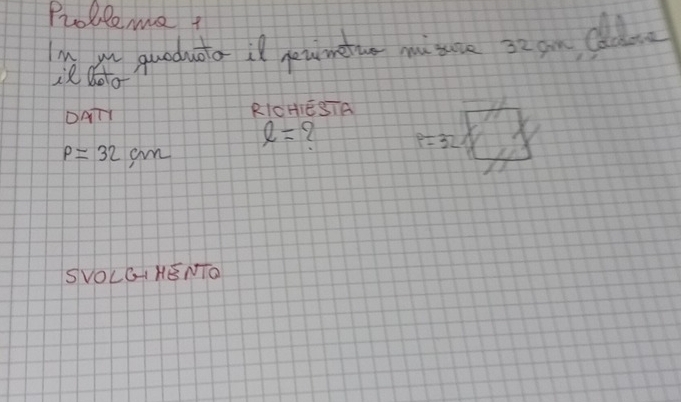 Problema 1
In un quadrato il perimetro misura 32 cm, Calcolare
il lato
DATI
RICHIESTA
P= 32 cm
l= ?
P=32
SVOLGIMENTO